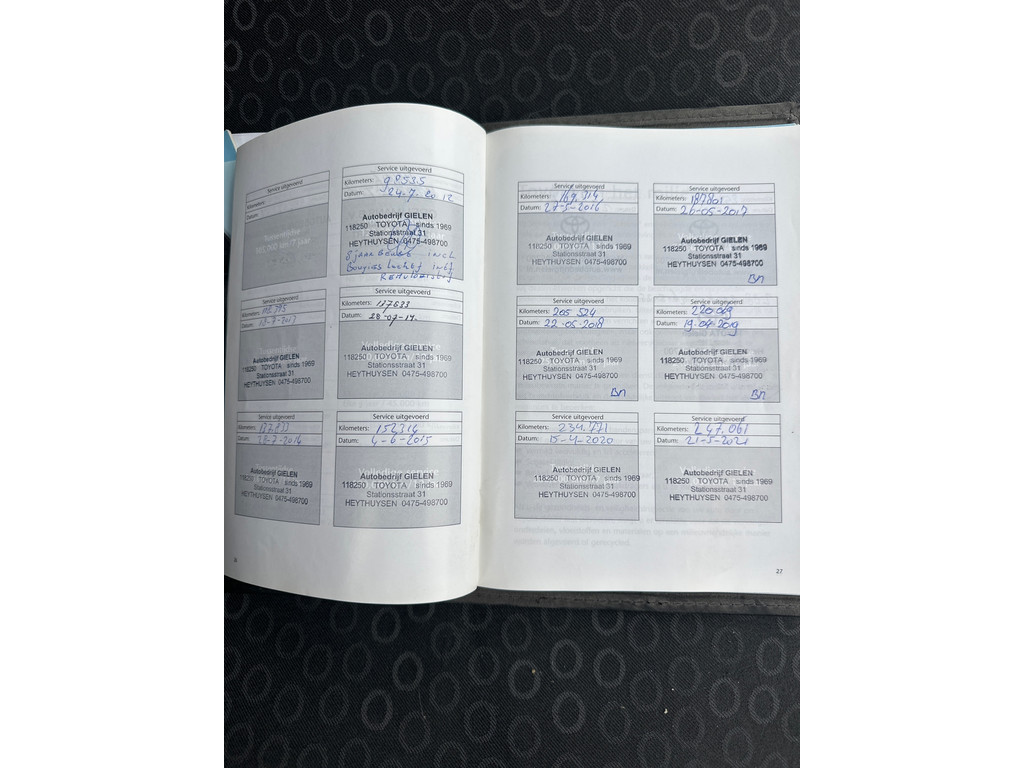 Service uitgevoerd
Kilometers:
Datum:
Service uitgevoerd
Kilometers: 98535
Datum: 24.7.2012
Autobedrijf GIELEN
118250 TOYOTA sinds 1969
Stationsstraat 31
HEYTHUYSEN 0475-498700
Service uitgevoerd
Kilometers:
Datum:
Autobedrijf GIELEN
118250 TOYOTA sinds 1969
Stationsstraat 31
HEYTHUYSEN 0475-498700
Service uitgevoerd
Kilometers: 117633
Datum: 28-07-14.
Autobedrijf GIELEN
118250 TOYOTA sinds 1969
Stationsstraat 31
HEYTHUYSEN 0475-498700
Service uitgevoerd
Kilometers:
Datum: 28-7-2014
Autobedrijf GIELEN
118250 TOYOTA sinds 1969
Stationsstraat 31
HEYTHUYSEN 0475-498700
Service uitgevoerd
Kilometers: 152314
Datum: 4-6-2015
Autobedrijf GIELEN
118250 TOYOTA sinds 1969
Stationsstraat 31
HEYTHUYSEN 0475-498700
Service uitgevoerd
Kilometers:
Datum: 27-5-2016
Autobedrijf GIELEN
118250 TOYOTA sinds 1969
Stationsstraat 31
HEYTHUYSEN 0475-498700
Service uitgevoerd
Kilometers: 187801
Datum: 26-05-2017
Autobedrijf GIELEN
118250 TOYOTA sinds 1969
Stationsstraat 31
HEYTHUYSEN 0475-498700
BN
Service uitgevoerd
Kilometers: 205 524
Datum: 22-05-2018
Autobedrijf GIELEN
118250 TOYOTA sinds 1969
Stationsstraat 31
HEYTHUYSEN 0475-498700
BN
Service uitgevoerd
Kilometers: 220 069
Datum: 19-04-2019
Autobedrijf GIELEN
118250 TOYOTA sinds 1969
Stationsstraat 31
HEYTHUYSEN 0475-498700
BN
Service uitgevoerd
Kilometers: 234.771
Datum: 15-4-2020
Autobedrijf GIELEN
118250 TOYOTA sinds 1969
Stationsstraat 31
HEYTHUYSEN 0475-498700
Service uitgevoerd
Kilometers: 247.061
Datum: 21-5-2021
Autobedrijf GIELEN
118250 TOYOTA sinds 1969
Stationsstraat 31
HEYTHUYSEN 0475-498700
27